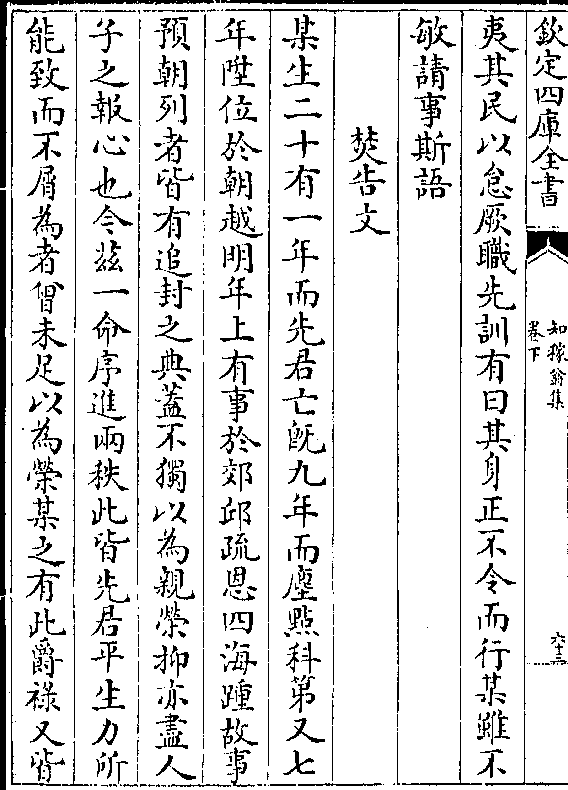 欽定四庫全書
知稼翁集
卷下
六十三
夷其民以怠厥職先訓有曰其身正不令而行某雖不
敏請事斯語
焚告文
某生二十有一年而先君亡旣九年而塵㸃科第又七
年陞位於朝越明年上有事於郊邱疏恩四海踵故事
預朝列者皆有追封之典蓋不獨以為親榮抑亦盡人
子之報心也令兹一命序進兩秩此皆先君平生力所
能致而不屑為者曾未足以為榮某之有此爵禄又皆